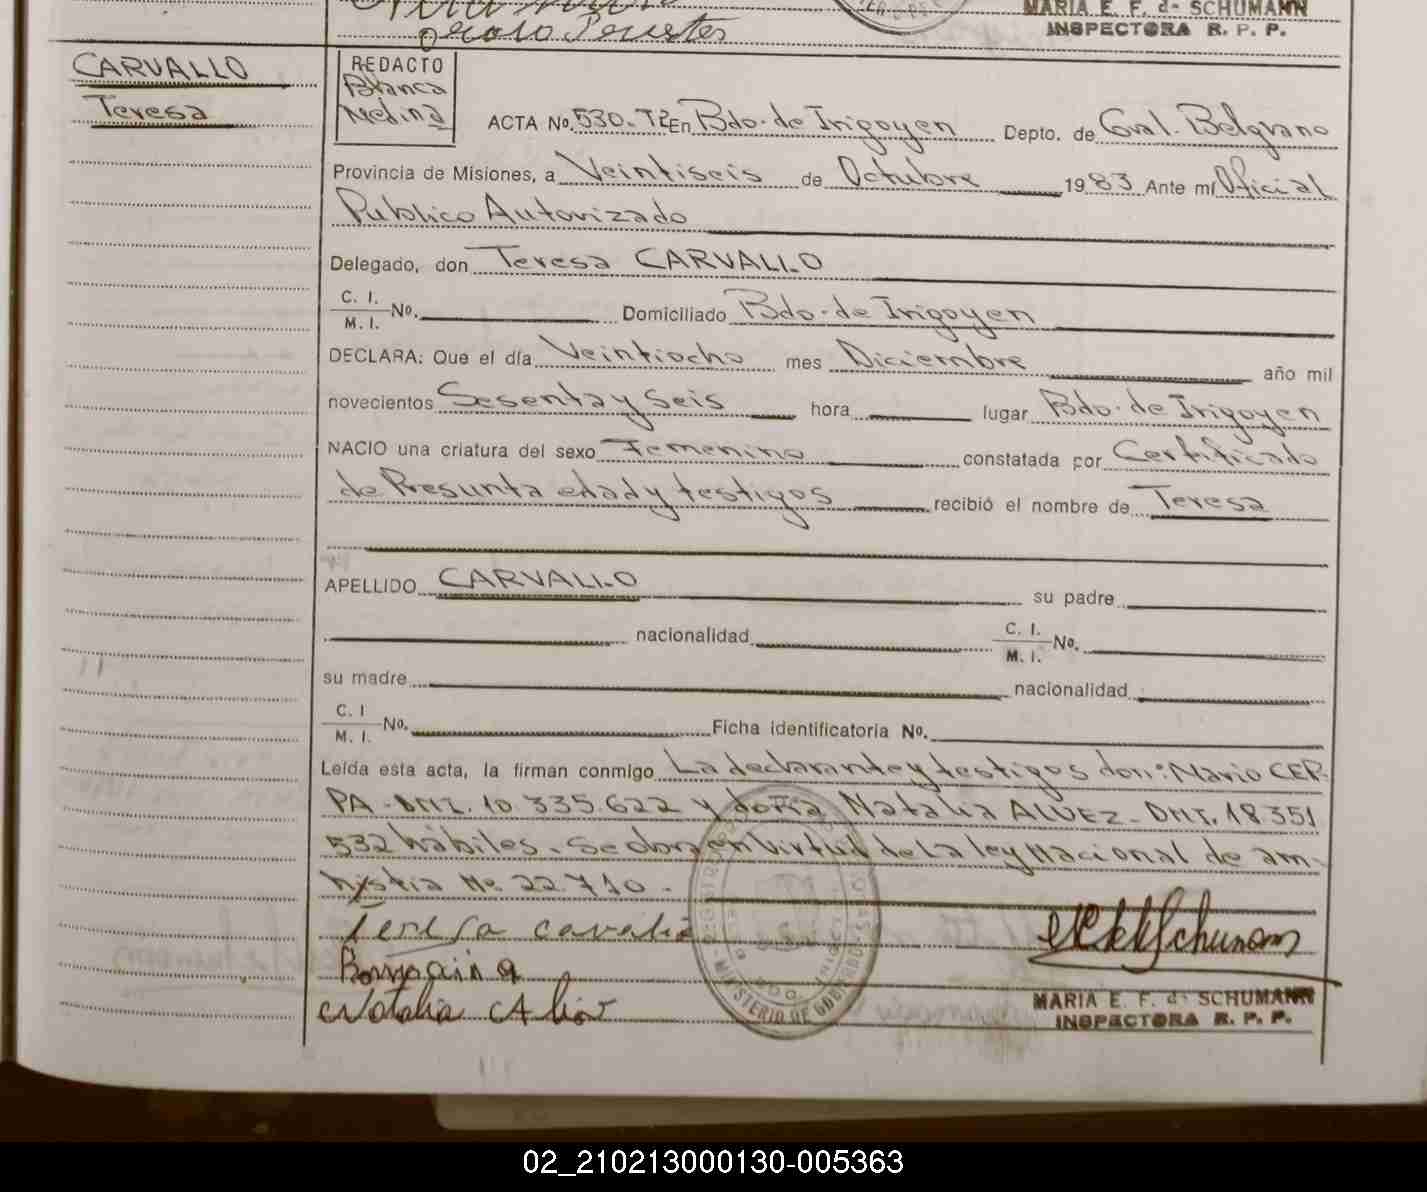 MARIA E. F. de SCHUMANN
INSPECTORA R. P. P.
CARVALLO
Teresa
REDACTO
Blanca
Medina
ACTA No. 530-T2 En Bdo. de Irigoyen Depto. de Gral. Belgrano
Provincia de Misiones, a Veintiseis de Octubre 1983 Ante mí Oficial
Publico Autorizado
Delegado, don Teresa CARVALLO
C. I.
M. I. No. Domiciliado Bdo. de Irigoyen
DECLARA: Que el día Veintiocho mes Diciembre año mil
novecientos Sesenta y Seis hora lugar Bdo. de Irigoyen
NACIO una criatura del sexo Femenino constatada por Certificado
de Presunta edad y testigos recibió el nombre de Teresa
APELLIDO CARVALLO su padre
nacionalidad C. I.
M. I. No.
su madre nacionalidad
C. I
M. I. No. Ficha identificatoria No.
Leída esta acta, la firman conmigo La declarante y testigos don: Mario CER-
PA - DNI. 10.335.622 y doña Natalia ALVEZ - DNI. 18.351
532 hábiles. Se obra en virtud de La ley Nacional de am-
nistia Nº 22.710.
Teresa cavalio
Natalia
MINISTERIO DE GOBIERNO
MARIA E. F. de SCHUMANN
INSPECTORA R. P. P.
02_210213000130-005363